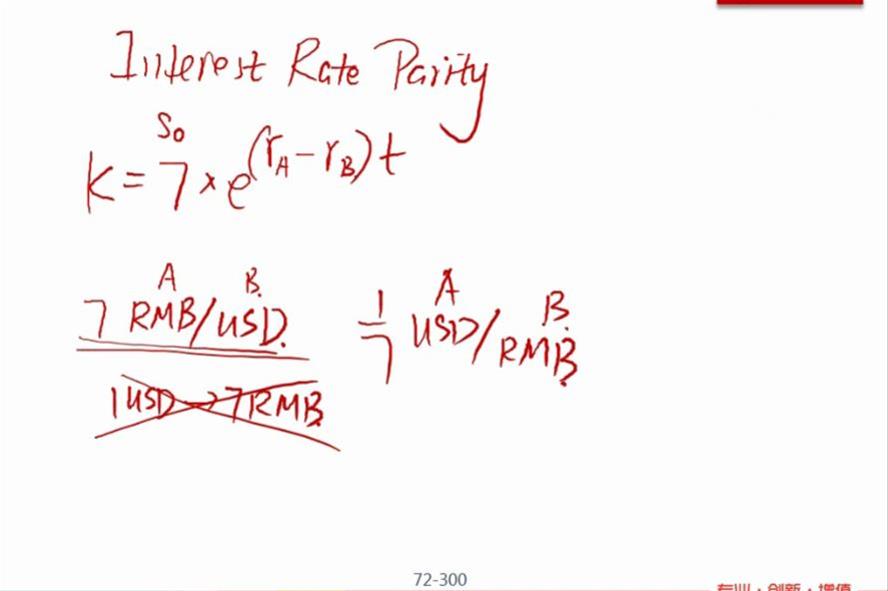 Interest Rate Parity
S₀
K = 7 × e^(r_A − r_B)t
A B. A B.
7 RMB/USD. 1/7 USD/RMB.
1 USD → 7 RMB.
72-300
专业·创新·增值